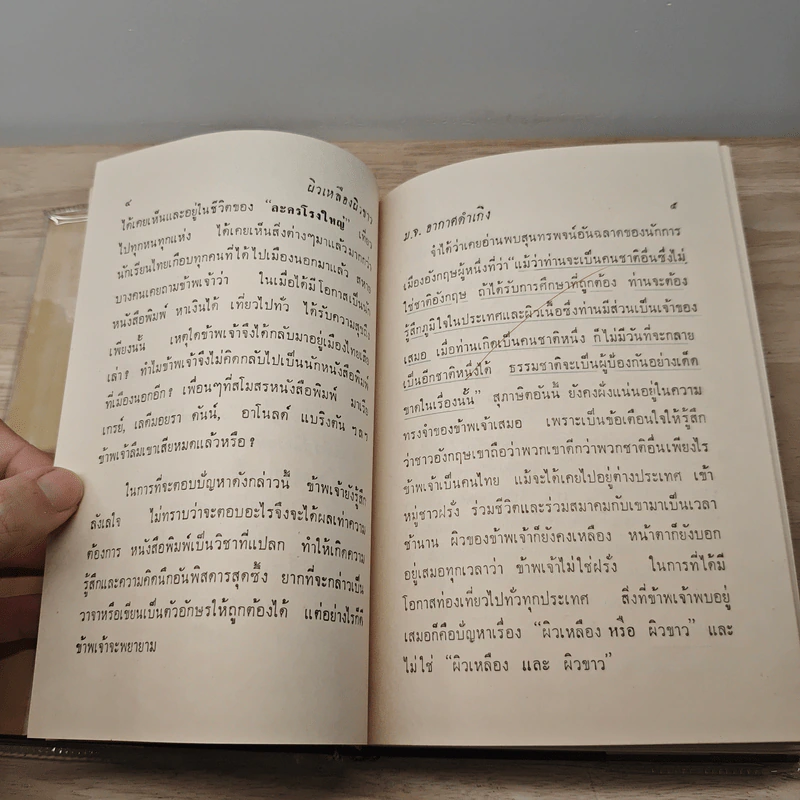 ๔
ผิวเหลืองผิวขาว
ได้เคยเห็นและอยู่ในชีวิตของ "ละครโรงใหญ่" เที่ยว
ไปทุกหนทุกแห่ง ได้เคยเห็นสิ่งต่างๆมาแล้วมากกว่า
นักเรียนไทยเกือบทุกคนที่ได้ไปเมืองนอกมาแล้ว สหาย
บางคนเคยถามข้าพเจ้าว่า ในเมื่อได้มีโอกาสเป็นนัก
หนังสือพิมพ์ หาเงินได้ เที่ยวไปทั่ว ได้รับความสุขถึง
เพียงนั้น เหตุใดข้าพเจ้าจึงได้กลับมาอยู่เมืองไทยเสีย
เล่า? ทำไมข้าพเจ้าจึงไม่คิดกลับไปเป็นนักหนังสือพิมพ์
ที่เมืองนอกอีก? เพื่อนๆที่สโมสรหนังสือพิมพ์ มาเรีย
เกรย์, เลดีมอยรา ดันน์, อาโนลด์ แบริงตัน ฯลฯ
ข้าพเจ้าลืมเขาเสียหมดแล้วหรือ?
ในการที่จะตอบปัญหาดังกล่าวนี้ ข้าพเจ้ายังรู้สึก
ลังเลใจ ไม่ทราบว่าจะตอบอะไรจึงจะได้ผลเท่าความ
ต้องการ หนังสือพิมพ์เป็นวิชาที่แปลก ทำให้เกิดความ
รู้สึกและความคิดนึกอันพิสดารสุดซึ้ง ยากที่จะกล่าวเป็น
วาจาหรือเขียนเป็นตัวอักษรให้ถูกต้องได้ แต่อย่างไรก็ดี
ข้าพเจ้าจะพยายาม
ม.จ. อากาศดำเกิง
๕
จำได้ว่าเคยอ่านพบสุนทรพจน์อันฉลาดของนักการ
เมืองอังกฤษผู้หนึ่งที่ว่า "แม้ว่าท่านจะเป็นคนชาติอื่นซึ่งไม่
ใช่ชาติอังกฤษ ถ้าได้รับการศึกษาที่ถูกต้อง ท่านจะต้อง
รู้สึกภูมิใจในประเทศและผิวเนื้อซึ่งท่านมีส่วนเป็นเจ้าของ
เสมอ เมื่อท่านเกิดเป็นคนชาติหนึ่ง ก็ไม่มีวันที่จะกลาย
เป็นอีกชาติหนึ่งได้ ธรรมชาติจะเป็นผู้ป้องกันอย่างเด็ด
ขาดในเรื่องนั้น" สุภาษิตอันนี้ ยังคงฝั่งแน่นอยู่ในความ
ทรงจำของข้าพเจ้าเสมอ เพราะเป็นข้อเตือนใจให้รู้สึก
ว่าชาวอังกฤษเขาถือว่าพวกเขาดีกว่าพวกชาติอื่นเพียงไร
ข้าพเจ้าเป็นคนไทย แม้จะได้เคยไปอยู่ต่างประเทศ เข้า
หมู่ชาวฝรั่ง ร่วมชีวิตและร่วมสมาคมกับเขามาเป็นเวลา
ช้านาน ผิวของข้าพเจ้าก็ยังคงเหลือง หน้าตาก็ยังบอก
อยู่เสมอทุกเวลาว่า ข้าพเจ้าไม่ใช่ฝรั่ง ในการที่ได้มี
โอกาสท่องเที่ยวไปทั่วทุกประเทศ สิ่งที่ข้าพเจ้าพบอยู่
เสมอก็คือปัญหาเรื่อง "ผิวเหลือง หรือ ผิวขาว" และ
ไม่ใช่ "ผิวเหลือง และ ผิวขาว"